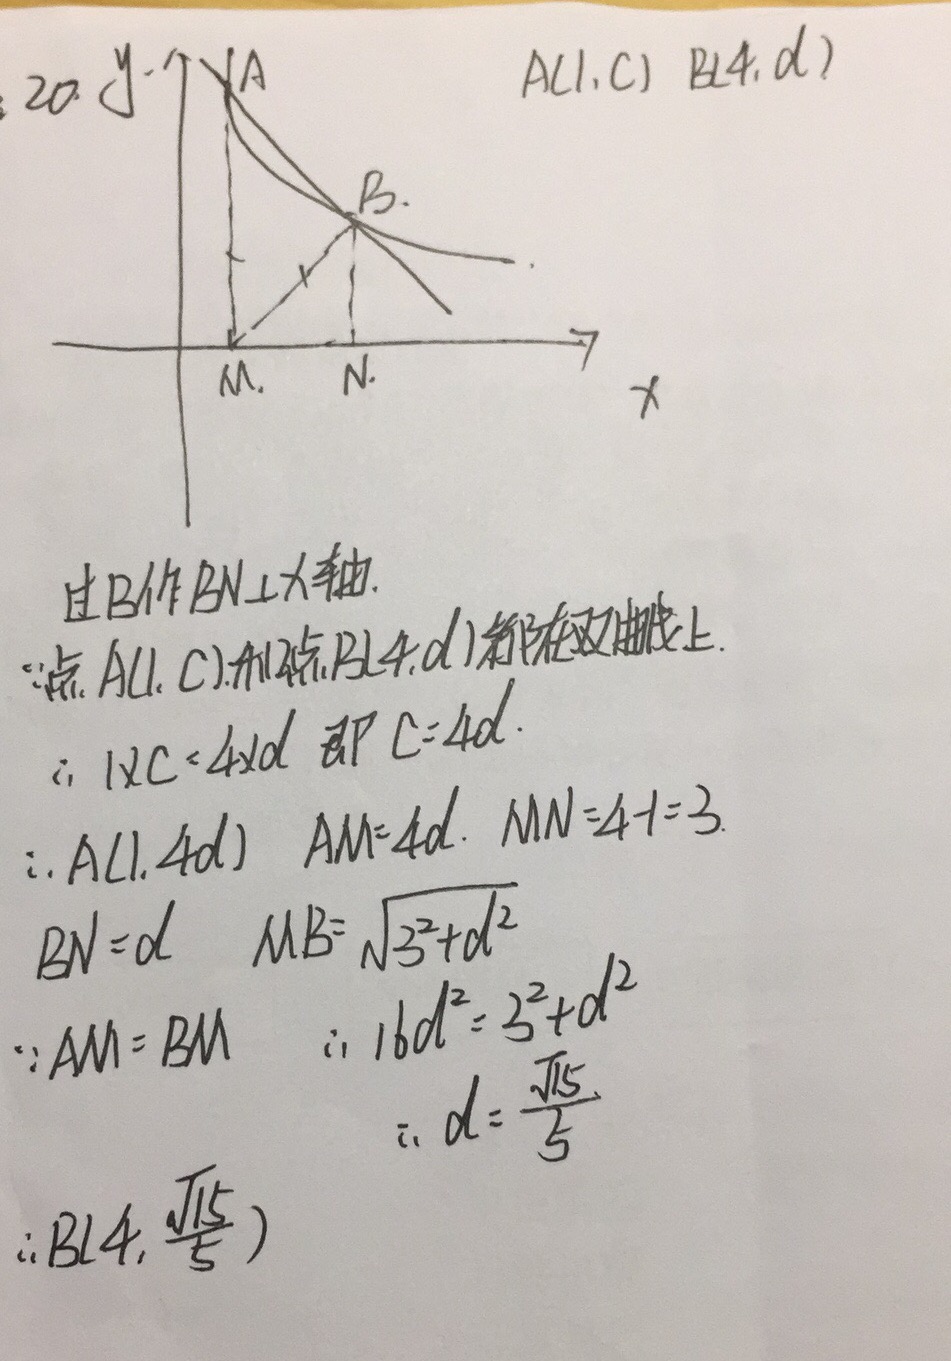 20. y A A(1,C) B(4,d)
B.
M. N.
x
过B作BN⊥x轴.
∵点A(1,C)和点B(4,d)都在双曲线上.
∴1×C=4×d 即C=4d.
∴A(1,4d) AM=4d. MN=4-1=3.
BN=d MB=√(3²+d²)
∵AM=BM ∴16d²=3²+d²
∴d=√15/5
∴B(4,√15/5)